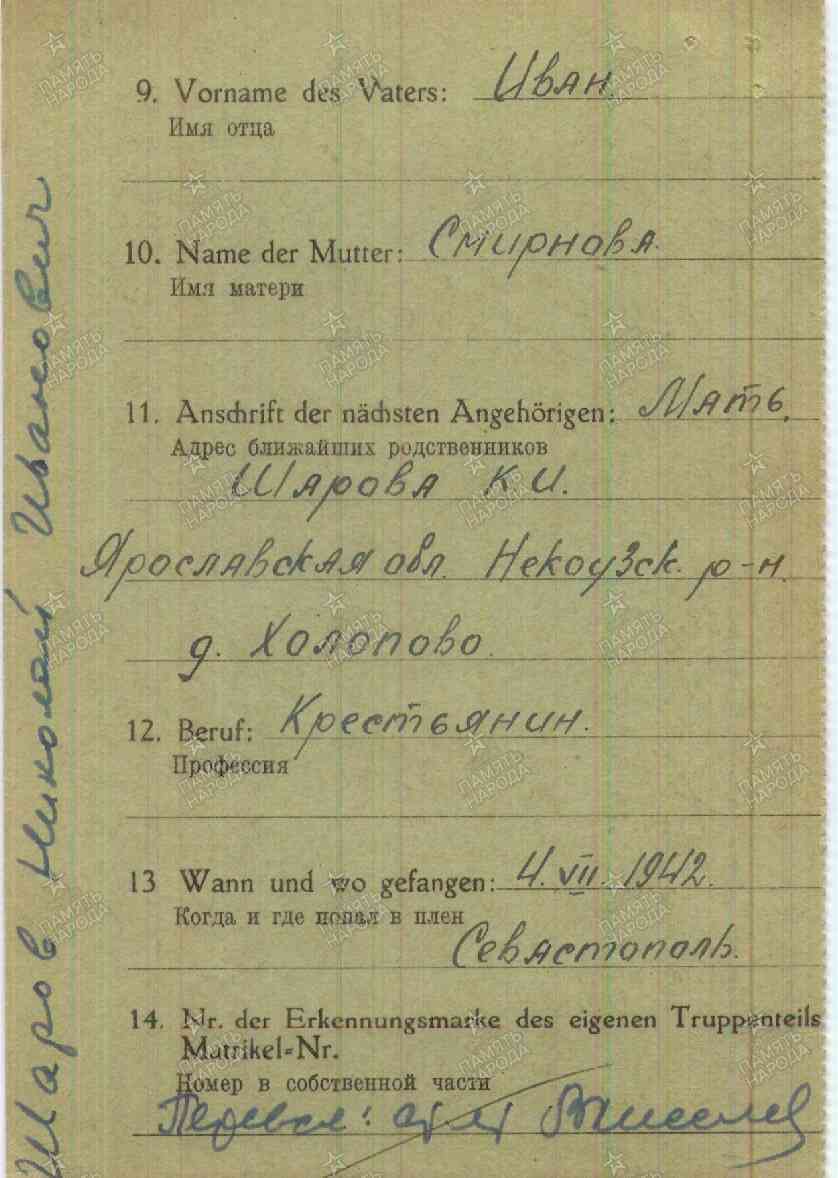 9. Vorname des Vaters: Иван.
Имя отца
10. Name der Mutter: Смирнова.
Имя матери
11. Anschrift der nächsten Angehörigen: Мать.
Адрес ближайших родственников
Шарова К.И.
Ярославская обл. Некоузск. р-н.
д. Холопово.
12. Beruf: Крестьянин.
Профессия
13 Wann und wo gefangen: 4. VII. 1942.
Когда и где попал в плен
Севастополь.
14. Nr. der Erkennungsmarke des eigenen Truppenteils
Matrikel=Nr.
Номер в собственной части
Перевел:
Шаров Николай Иванович
ПАМЯТЬ
НАРОДА